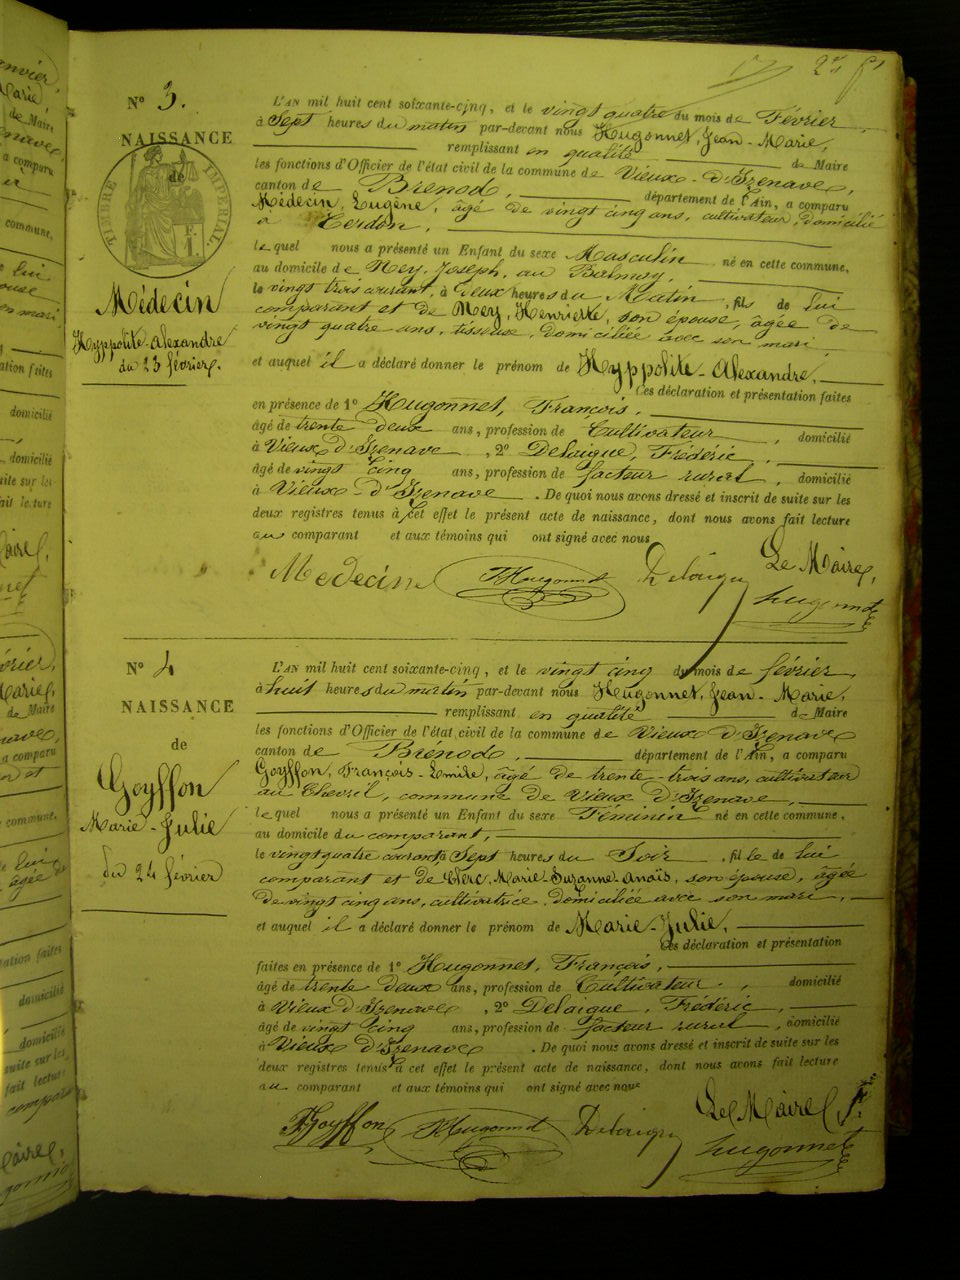 2
N° 3.
NAISSANCE
de
TIMBRE IMPÉRIAL.
Médecin
Hyppolite-Alexandre
du 23 février.
L'AN mil huit cent soixante-cinq, et le vingt quatre du mois de Février
à Sept heures du matin par-devant nous Hugonnet, Jean-Marie,
remplissant en qualité de Maire
les fonctions d'Officier de l'état civil de la commune de Vieux-d'Izenave,
canton de Brenod, département de l'Ain, a comparu
Médecin, Eugène, âgé de vingt cinq ans, cultivateur, domicilié
à Cerdon,
lequel nous a présenté un Enfant du sexe Masculin né en cette commune,
au domicile de Ney, Joseph, au
le vingt trois courant, à deux heures du Matin, fils de lui
comparant et de Ney, Henriette, son épouse, âgée de
vingt quatre ans, tisseuse, domiciliée avec son mari
et auquel il a déclaré donner le prénom de Hyppolite-Alexandre,
Ces déclaration et présentation faites
en présence de 1° Hugonnet, François,
âgé de trente deux ans, profession de Cultivateur, domicilié
à Vieux d'Izenave, 2° Delaigue, Frédéric,
âgé de vingt cinq ans, profession de facteur rural, domicilié
à Vieux-d'Izenave. De quoi nous avons dressé et inscrit de suite sur les
deux registres tenus à cet effet le présent acte de naissance, dont nous avons fait lecture
au comparant et aux témoins qui ont signé avec nous
Le Maire,
Medecin Hugonnet Delaigue
hugonnet
N° 4
NAISSANCE
de
Goyffon
Marie-Julie
du 24 février
L'AN mil huit cent soixante-cinq, et le vingt cinq du mois de février
à huit heures du matin par-devant nous Hugonnet, Jean-Marie,
remplissant en qualité de Maire
les fonctions d'Officier de l'état civil de la commune de Vieux d'Izenave
canton de Brénod, département de l'Ain, a comparu
Goyffon, François-Emile, âgé de trente-trois ans, cultivateur
au Chevril, commune de Vieux d'Izenave,
lequel nous a présenté un Enfant du sexe Féminin né en cette commune,
au domicile du comparant,
le vingt quatre courant, à Sept heures du Soir, fille de lui
comparant et de Clerc, Marie-Suzanne-Anaïs, son épouse, âgée
de vingt cinq ans, cultivatrice, domiciliée avec son mari,
et auquel il a déclaré donner le prénom de Marie-Julie,
Ces déclaration et présentation
faites en présence de 1° Hugonnet, François,
âgé de trente deux ans, profession de Cultivateur, domicilié
à Vieux d'Izenave, 2° Delaigue, Frédéric,
âgé de vingt cinq ans, profession de facteur rural, domicilié
à Vieux d'Izenave. De quoi nous avons dressé et inscrit de suite sur les
deux registres tenus à cet effet le présent acte de naissance, dont nous avons fait lecture
au comparant et aux témoins qui ont signé avec nous
Le Maire
Goyffon Hugonnet Delaigue
hugonnet